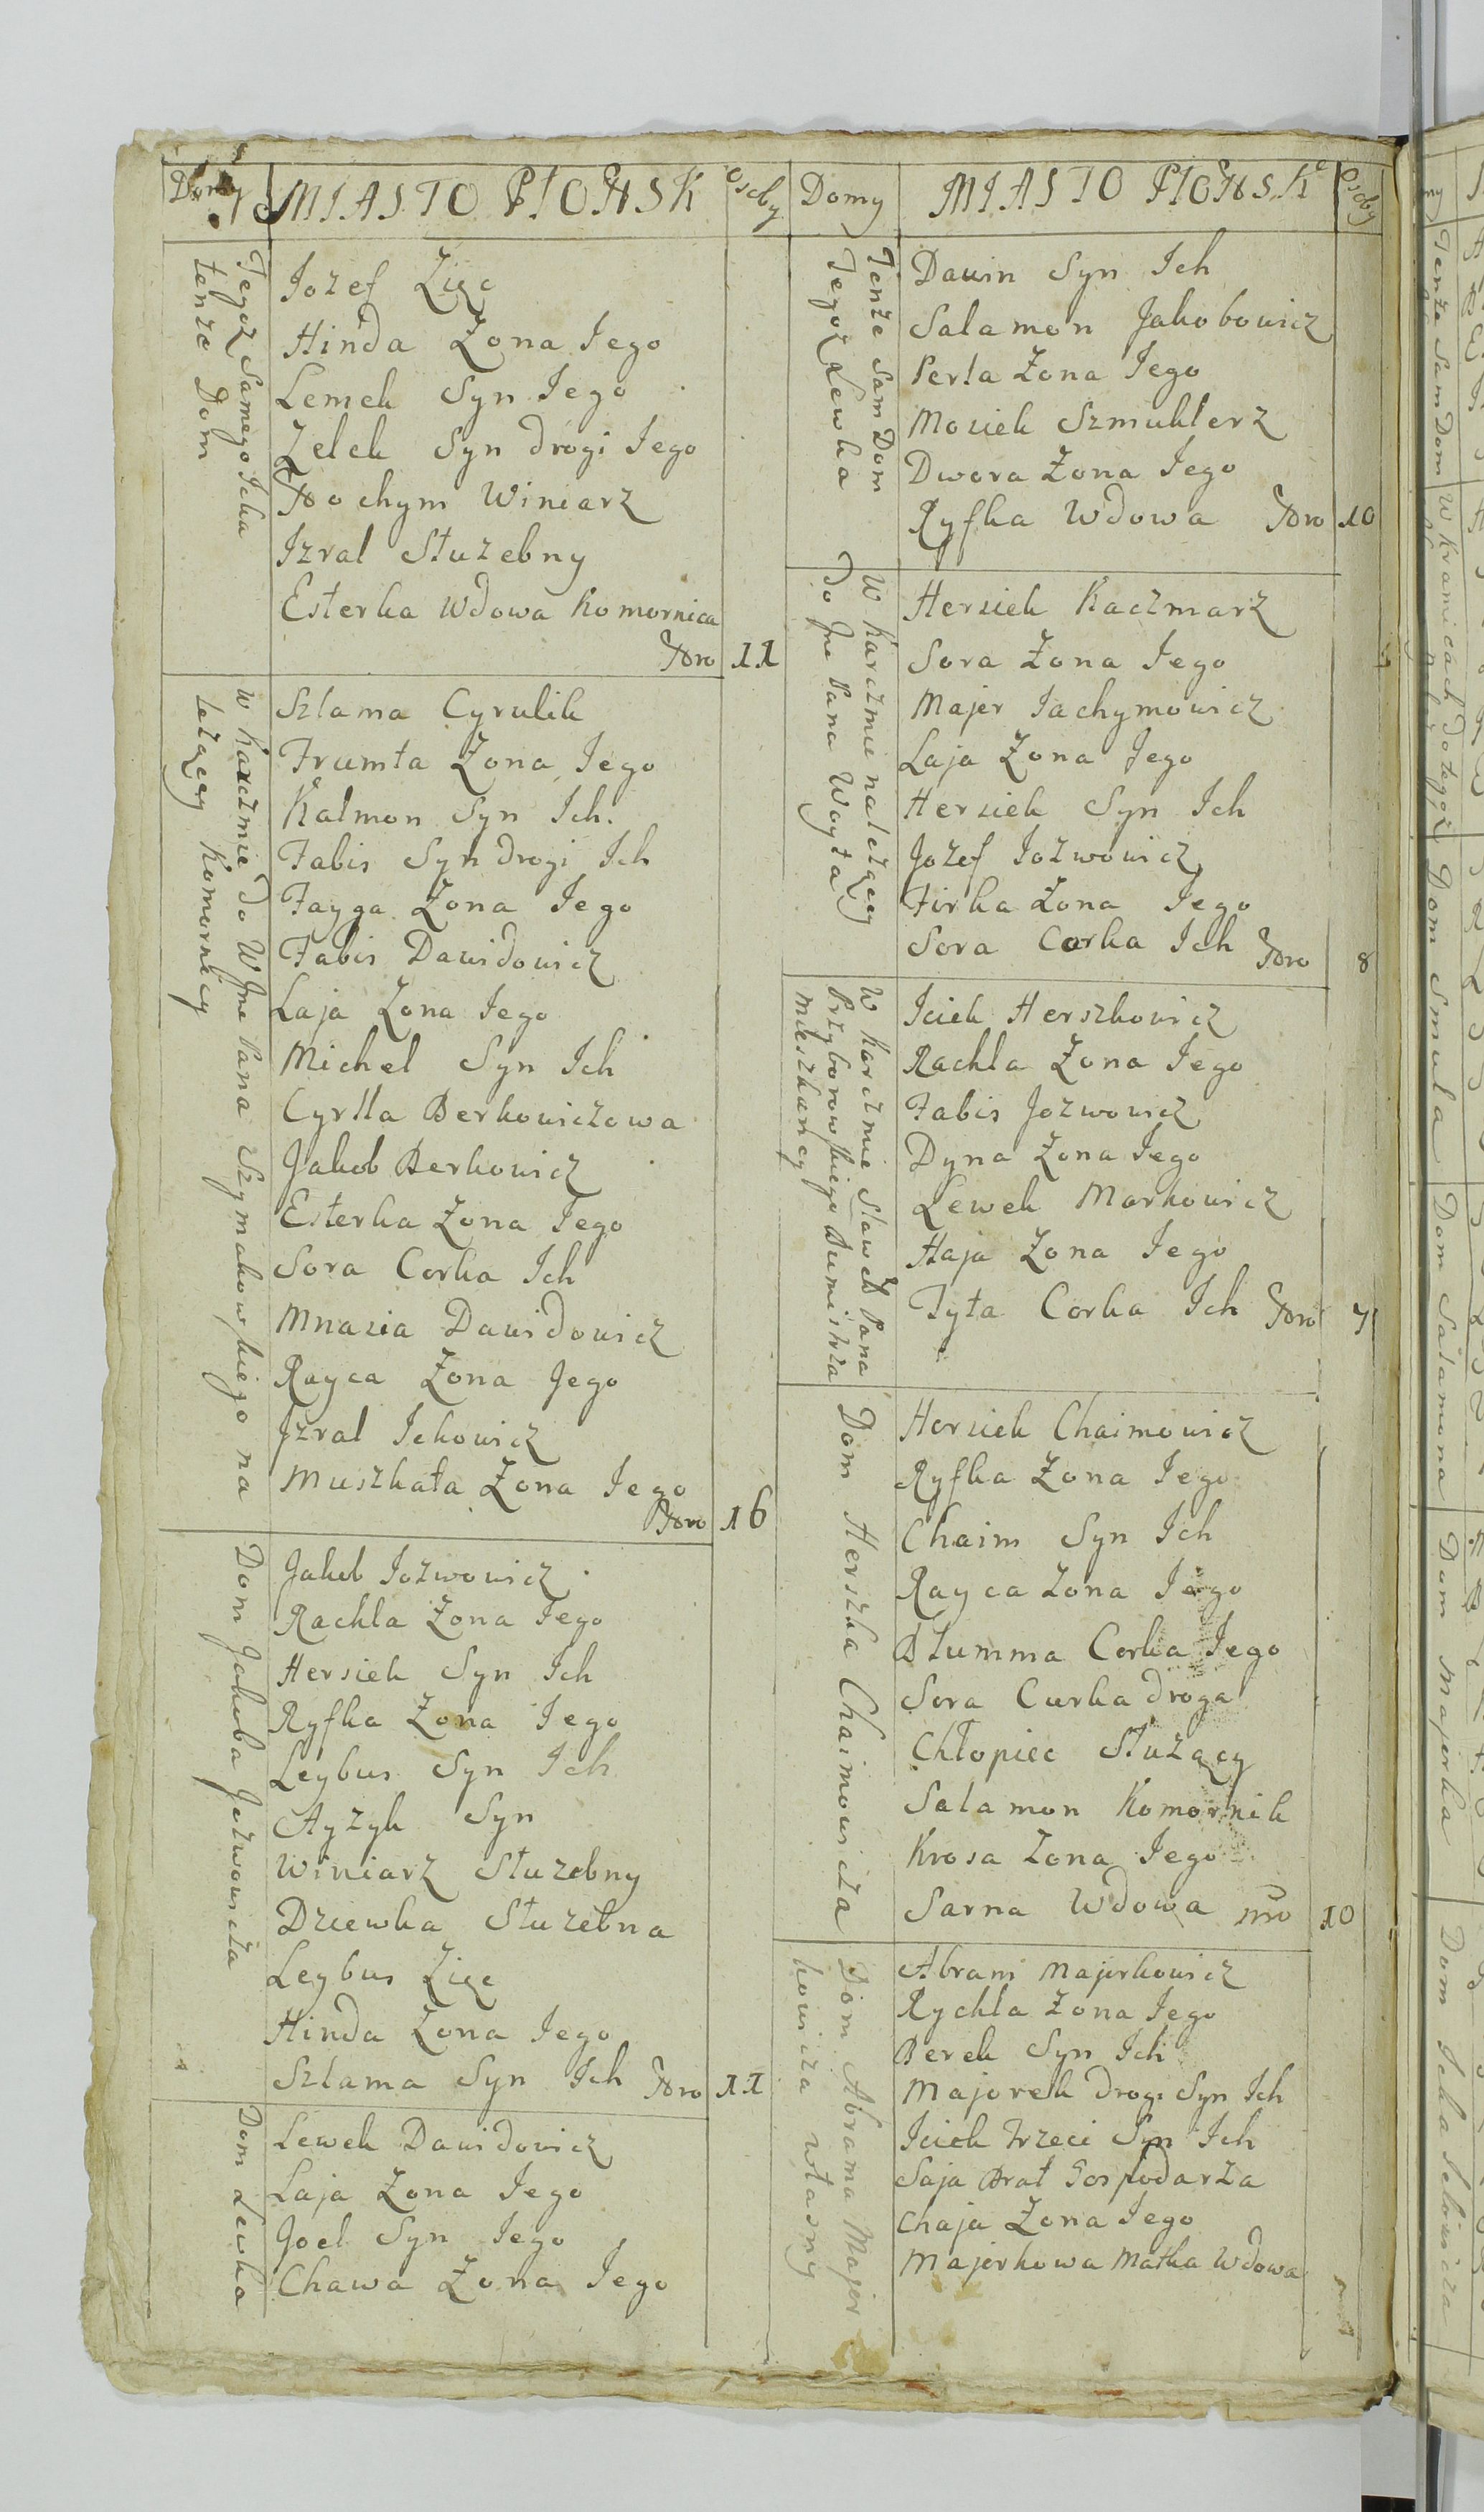 Domy
MIASTO PŁOŃSK
Osoby
Tegoż Samego Icka
tenże Dom
Iozef Zięc
Hinda Zona Iego
Lemek Syn Iego
Zelek Syn drogi Iego
Nochym Winiarz
Izral Służebny
Esterka Wdowa Komornica
Nro 11
w Karczmie do WJne Pana Szymakowskiego na
leżącey Komornicy
Szlama Cyrulik
Frumta Zona Iego
Kalmon Syn Ich
Fabis Syn drogi Ich
Fayga Zona Iego
Fabis Dawidowicz
Laja Zona Iego
Michel Syn Ich
Cyrlla Berkowiczowa
Jakob Berkowicz
Esterka Zona Iego
Sora Corka Ich
Mnasia Dawidowicz
Rayca Zona Jego
Jzral Ickowicz
Muszkata Zona Iego
Nro 16
Dom Jakoba Jozwowicza
Jakob Iozwowicz
Rachla Zona Iego
Hersiek Syn Ich
Ryfka Zona Iego
Leybus Syn Ich
Ayzyk Syn
Winiarz Służebny
Dziewka Służebna
Leybus Zięc
Hinda Zona Iego
Szlama Syn Ich Nro 11
Dom Lewka
Lewek Dawidowicz
Laja Zona Iego
Joel Syn Iego
Chawa Zona Iego
Domy
MIASTO PŁOŃSK
Osoby
Tenże Sam Dom
Tegoż Lewka
Dawin Syn Ich
Salamon Jakobowicz
Perla Zona Iego
Mosiek Szmuklerz
Dwora Zona Iego
Ryfka Wdowa Nro 10
W Karczmie należącey
do Jne Pana Woyta
Hersiek Kaczmarz
Sora Zona Iego
Majer Iachymowicz
Laja Zona Iego
Hersiek Syn Ich
Jozef Iozwowicz
Firka Zona Iego
Sora Corka Ich Nro 8
W Karczmie Sławet Pana
Przyborowskiego Burmistrza
Mieszkancy
Iciek Herszkowicz
Rachla Zona Iego
Fabis Jozwowicz
Dyna Zona Iego
Lewek Morkowicz
Haja Zona Iego
Tyta Corka Ich Nro 7
Dom Herszka Chaimowicza
Hersiek Chaimowicz
Ryfka Zona Iego
Chaim Syn Ich
Rayca Zona Iego
Blumma Corka Iego
Sora Curka droga
Chłopiec Służący
Salamon Komornik
Krosa Zona Iego
Sarna Wdowa nro 10
Dom Abrama Majer
kowicza własny
Abram Majerkowicz
Rychla Zona Iego
Berek Syn Ich
Majorek Drogi Syn Ich
Iciek trzeci Syn Ich
Saja Brat Gospodarza
Chaja Zona Iego
Majerkowa Matka Wdowa
Tenże Sam Dom
W Kramicach do tegoż
Dom Smula
Dom Salamona
Dom Majerka
Dom Icka